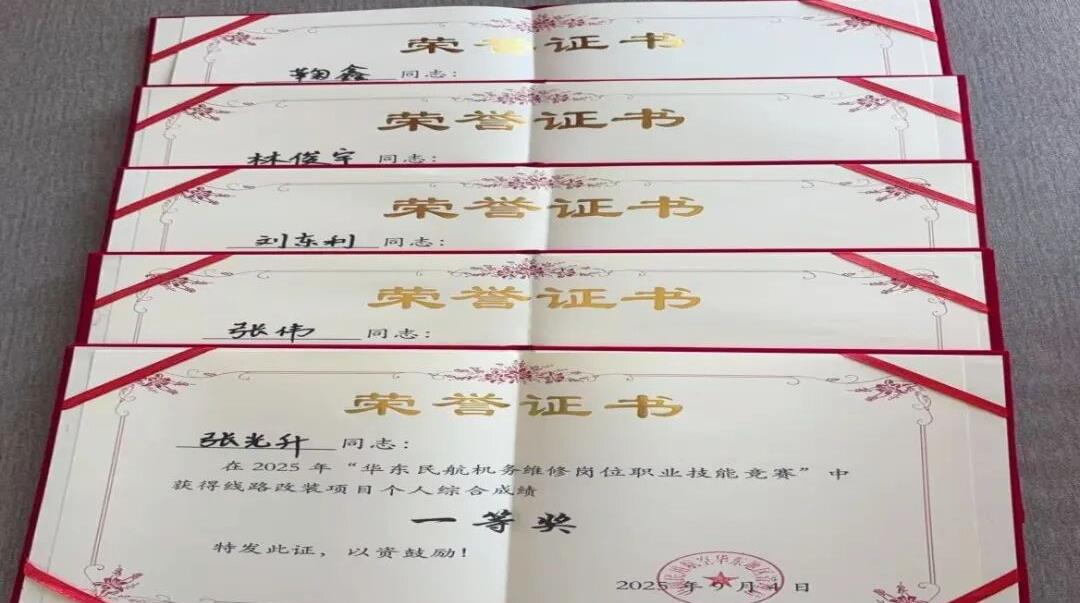 荣誉证书
鞠鑫 同志：
荣誉证书
林俊宇 同志：
荣誉证书
刘东利 同志：
荣誉证书
张伟 同志：
荣誉证书
张光升 同志：
在2025年“华东民航机务维修岗位职业技能竞赛”中
获得线路改装项目个人综合成绩
一等奖
特发此证，以资鼓励！
2025年9月4日